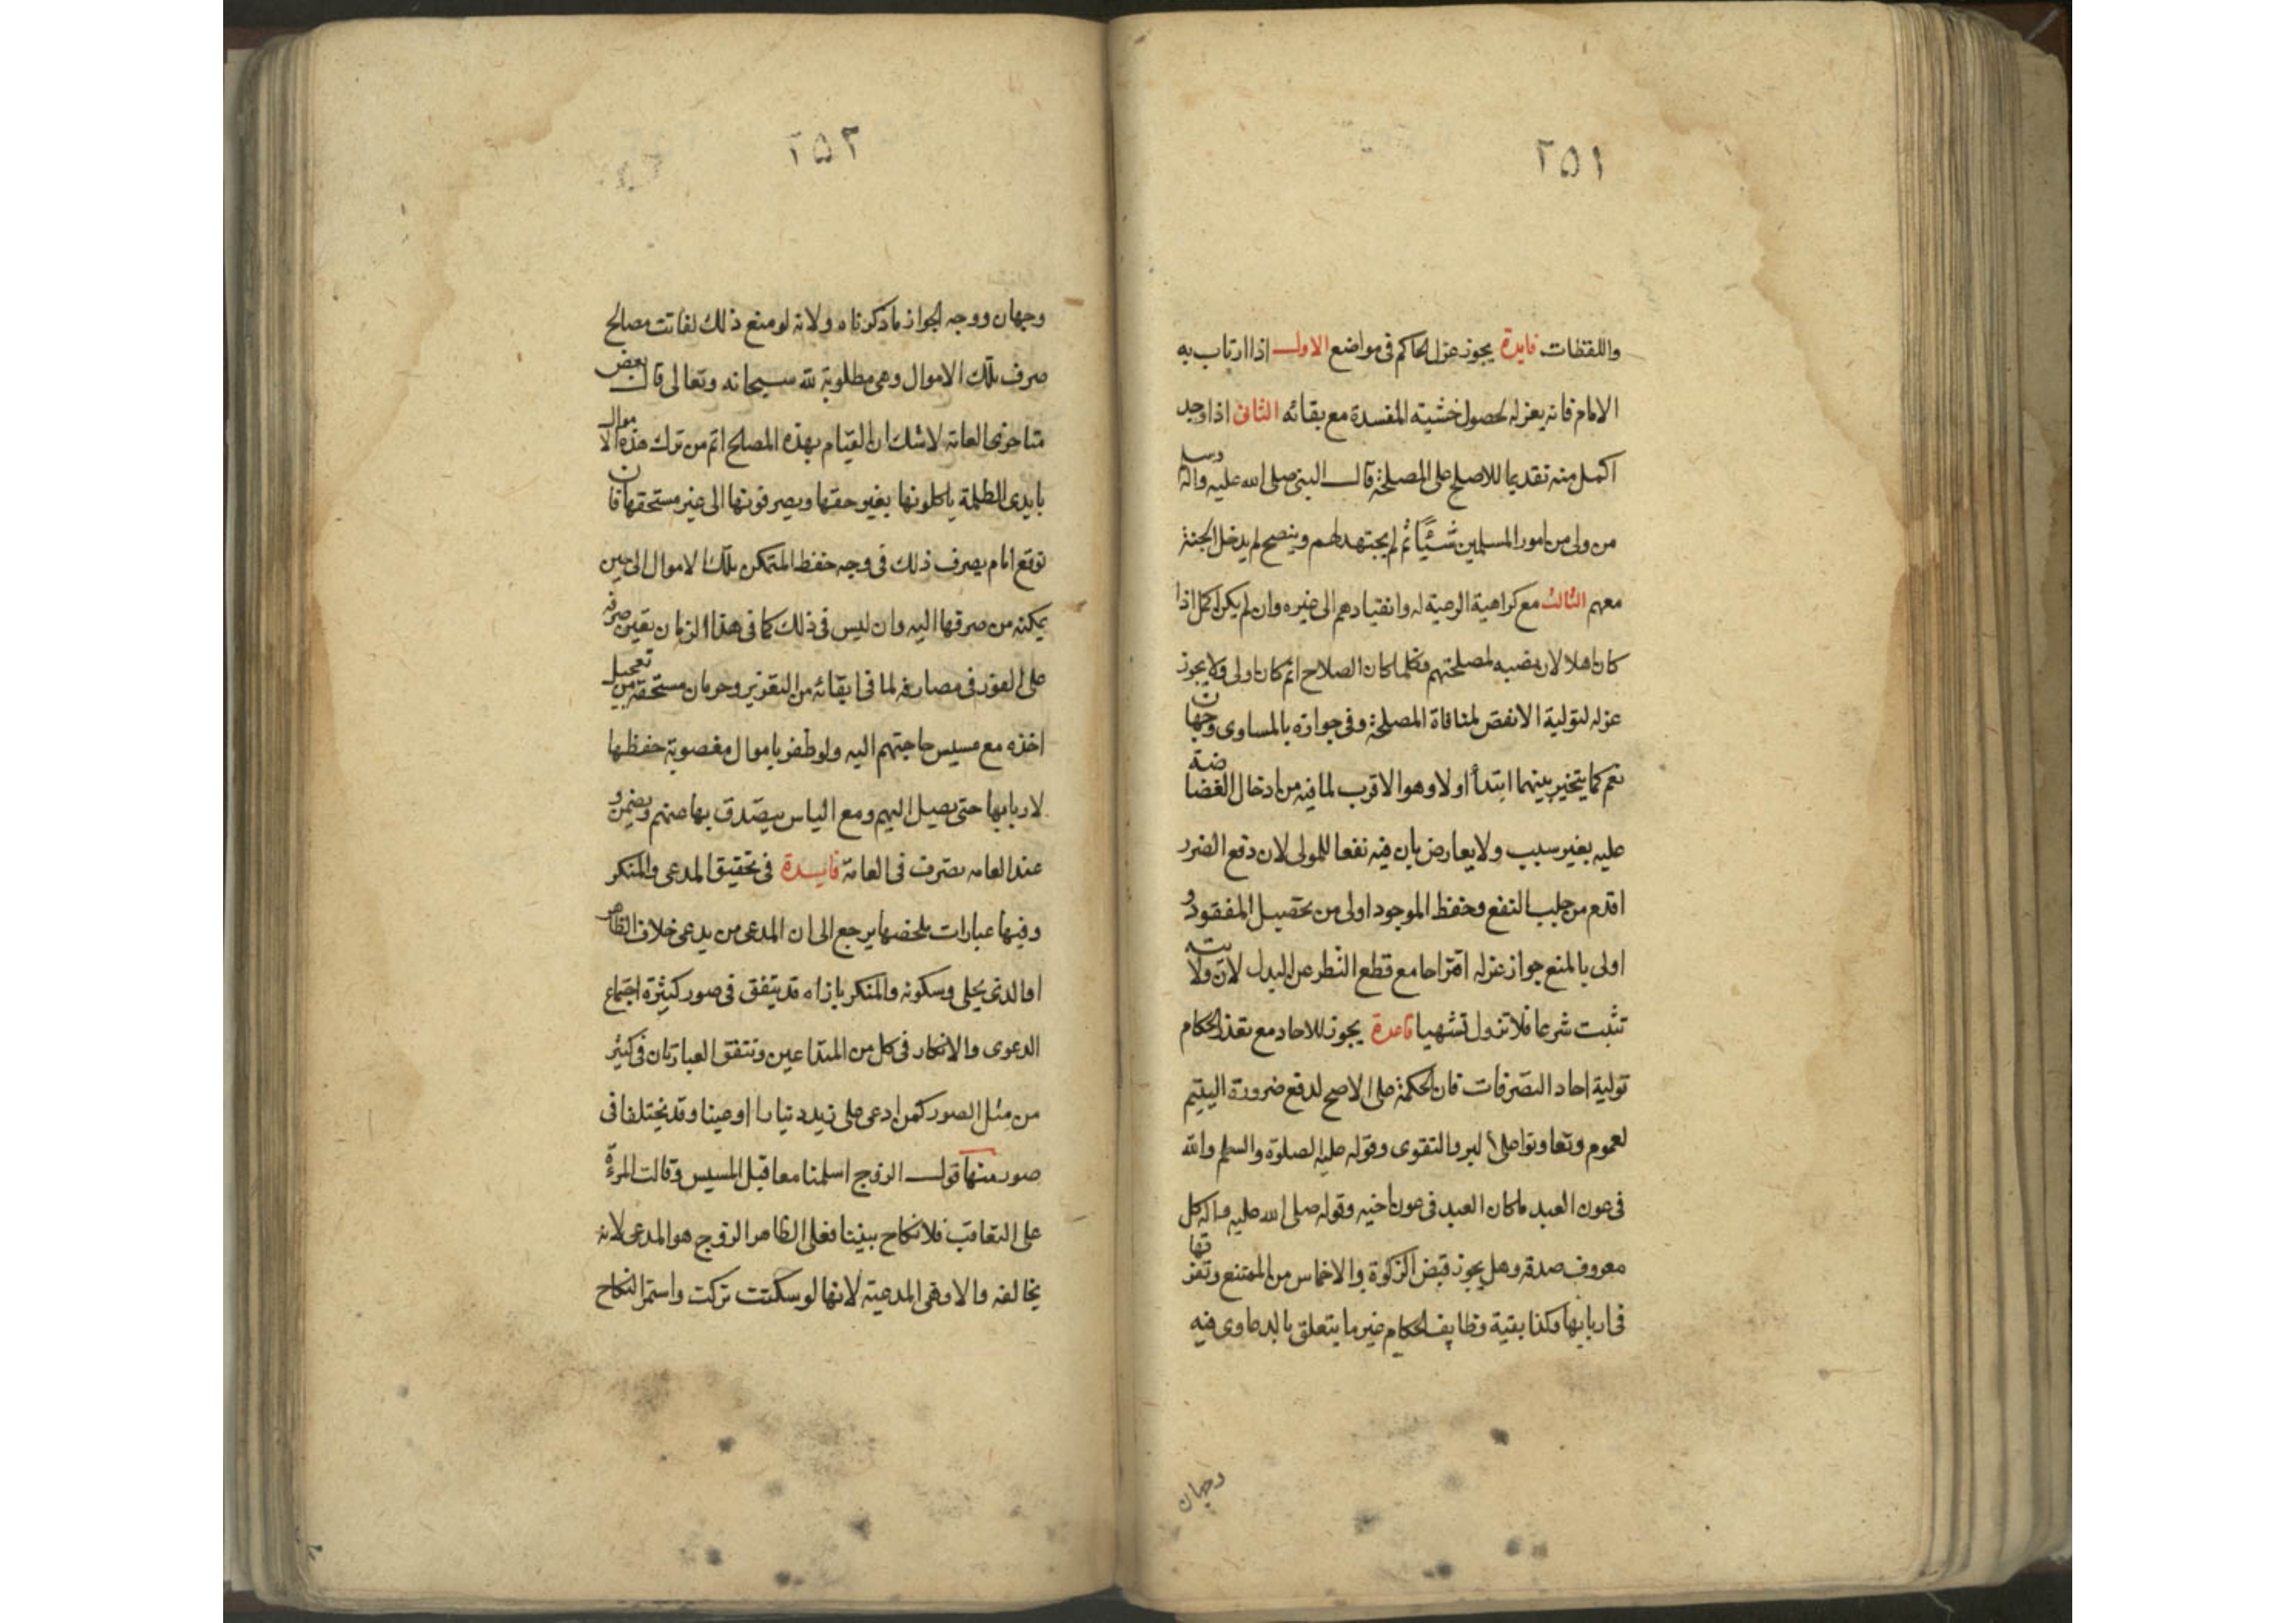 ٢۵١
واللقطات فايدة يجوز عزل الحاكم فى مواضع الاول اذا ارتاب به
الامام فانه يعزله لحصول خشيته المفسدة مع بقائه الثانى اذا وجد
اكمل منه تقديما للاصلح على المصلحة قال النبى صلى الله عليه واله وسلم
من ولى من امور المسلمين شيئا ثم لم يجتهد لهم وينصح لم يدخل الجنة
معهم الثالث مع كراهية الرعية له وانقيادهم الى غيره وان لم يكن اكمل اذا
كان اهلا لان نصبه لمصلحتهم فكلما كان الصلاح اتم كان اولى ولا يجوز
عزله لتولية الانقص لمنافاة المصلحة وفى جوازه بالمساوى وجهان
نعم كما يتخير بينهما ابتدأ اولا وهو الاقرب لما فيه من ادخال الغضاضة
عليه بغير سبب ولا يعارض بان فيه نفعا للمولى لان دفع الضرر
اقدم من جلب النفع وحفظ الموجود اولى من تحصيل المفقود و
اولى بالمنع جواز عزله اقتراحا مع قطع النظر عن البدل لان ولايته
تثبت شرعا فلا تزول تشهيا قاعدة يجوز للاحاد مع تعذر الحكام
تولية احاد التصرفات فان الحكمة على الاصح لدفع ضرورة اليتيم
لعموم وتعاونوا على البر والتقوى وقوله عليه الصلوة والسلم والله
فى عون العبد ما كان العبد فى عون اخيه وقوله صلى الله عليه واله كل
معروف صدقه وهل يجوز قبض الزكوة والاخماس من الممتنع وتفرقتها
فى اربابها وكذا بقية وظايف الحكام غير ما يتعلق بالدعاوى فيه
وجهان
٢۵٢
وجهان ووجه الجواز ما ذكرناه ولانه لو منع ذلك لفاتت مصالح
صرف تلك الاموال وهى مطلوبة لله سبحانه وتعالى قال بعض
متاخرى العامة لا شك ان القيام بهذه المصلح اتم من ترك هذه الاموال
بايدى الظلمة ياكلونها بغير حقها ويصرفونها الى غير مستحقها فان
توقع امام يصرف ذلك فى وجهه حفظ المتمكن تلك الاموال الى حين
يمكنه من صرفها اليه وان ليس فى ذلك كما فى هذا الزمان تعين صرفه
على الفور فى مصارفه لما فى ابقائه من التغرير وحرمان مستحقيه من تعجيل
اخذه مع مسيس حاجتهم اليه ولو ظفر باموال مغصوبة حفظها
لاربابها حتى يصيل اليهم ومع الياس يتصدق بها عنهم ويضمن و
عند العامه يصرف فى العامة فايدة فى تحقيق المدعى والمنكر
وفيها عبارات ملخصها يرجع الى ان المدعى من يدعى خلاف الظاهر
او الذى يخلى وسكونه والمنكر بازاه قد يتفق فى صور كثيرة اجتماع
الدعوى والانكار فى كل من المتداعين وتتفق العبارتان فى كثير
من مثل الصور كمن ادعى على زيد دنيارا او عينا وقد يختلفا فى
صور منها قول الزوج اسلمنا معا قبل المسيس وقالت المرءة
على التعاقب فلا نكاح بيننا فعلى الظاهر الزوج هو المدعى لانه
يخالفه والا وهى المدعية لانها لو سكتت تركت واستمر النكاح